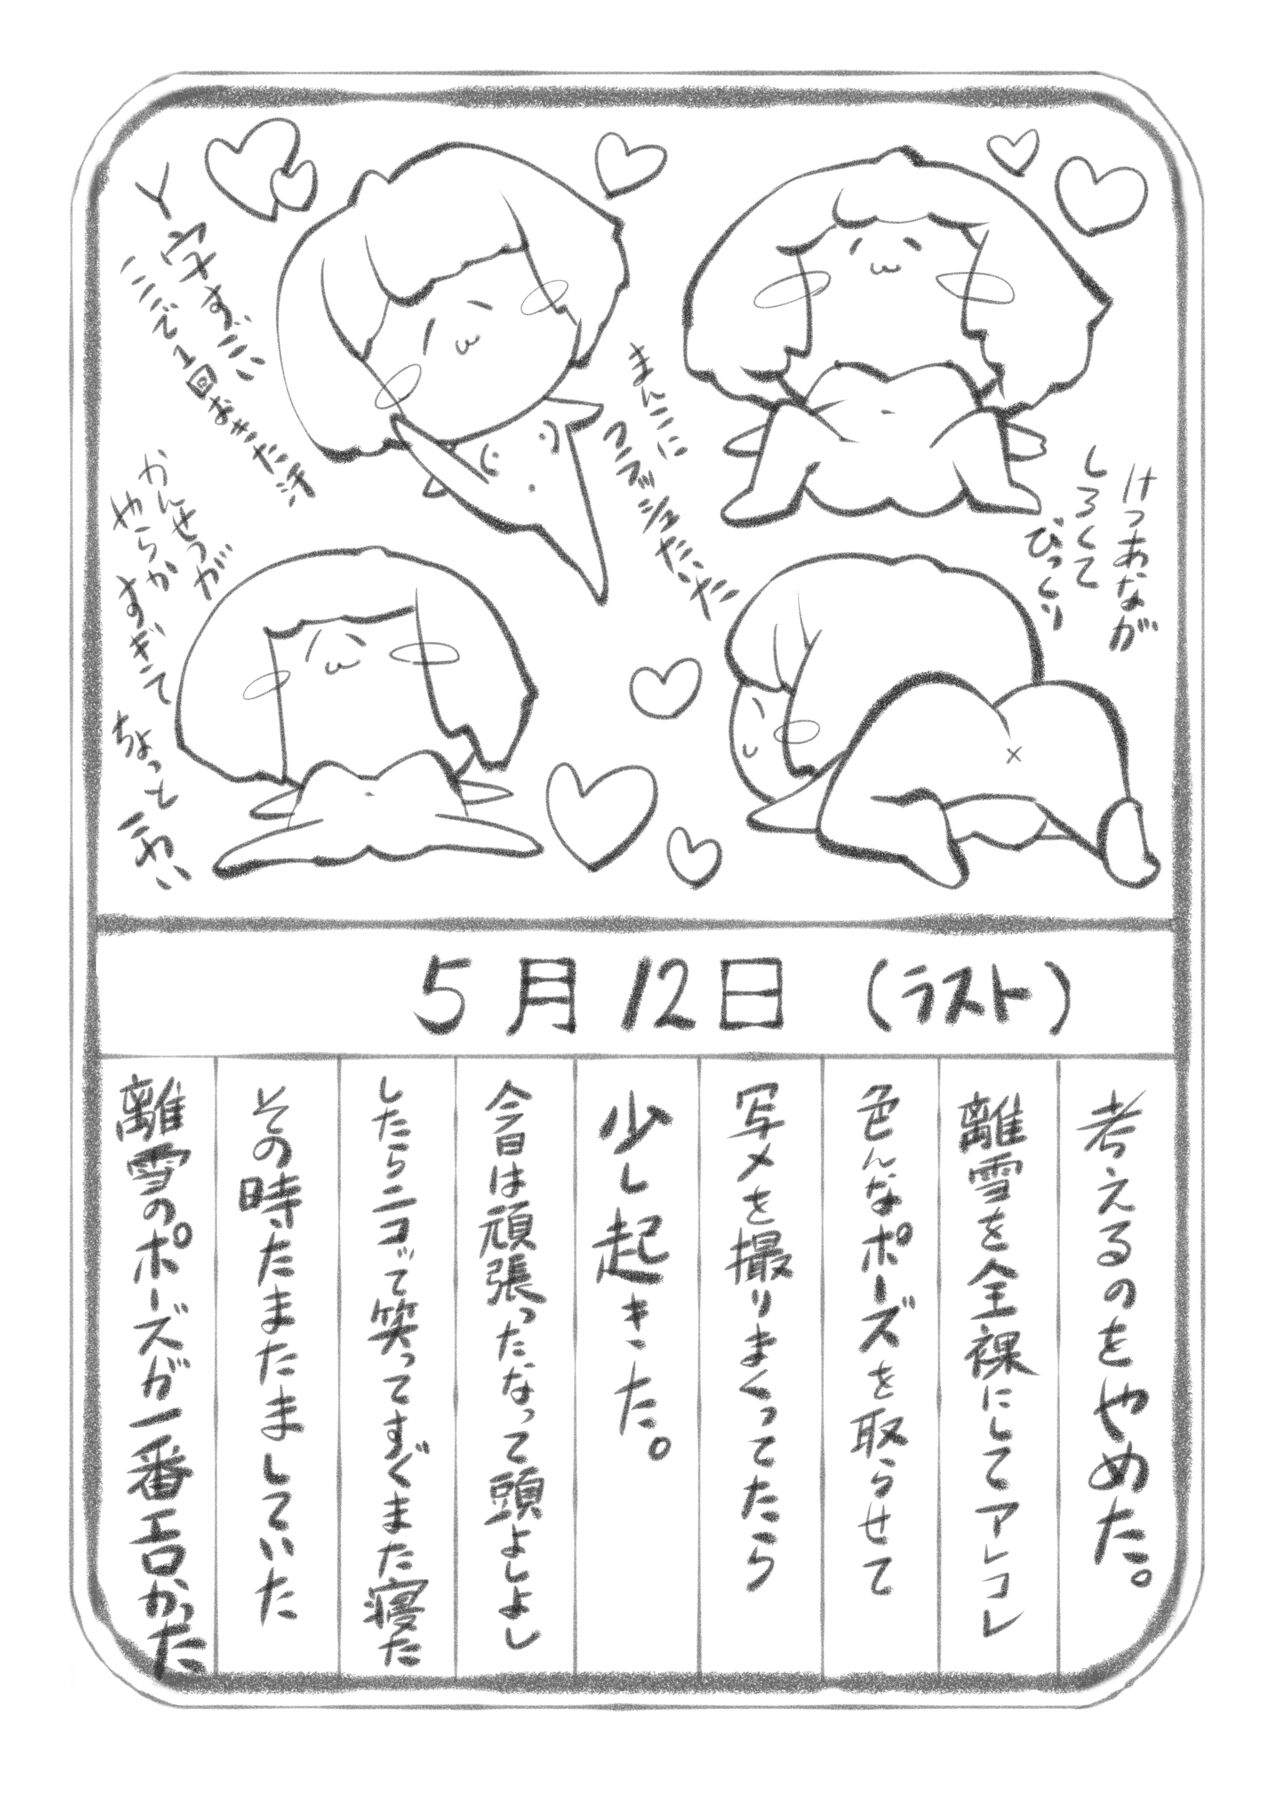 Y字すごい
ここで1回おきた汗
まんこに
フラッシュたいた
けつあなが
しろくて
びっくり
かんせつが
やらか
すぎて
ちょっと
こわい
5月12日 （ラスト）
考えるのをやめた。
離雪を全裸にしてアレコレ
色んなポーズを取らせて
写メを撮りまくってたら
少し起きた。
今日は頑張ったなって頭よしよし
したらニコって笑ってすぐまた寝た
その時たまたましていた
離雪のポーズが一番エロかった